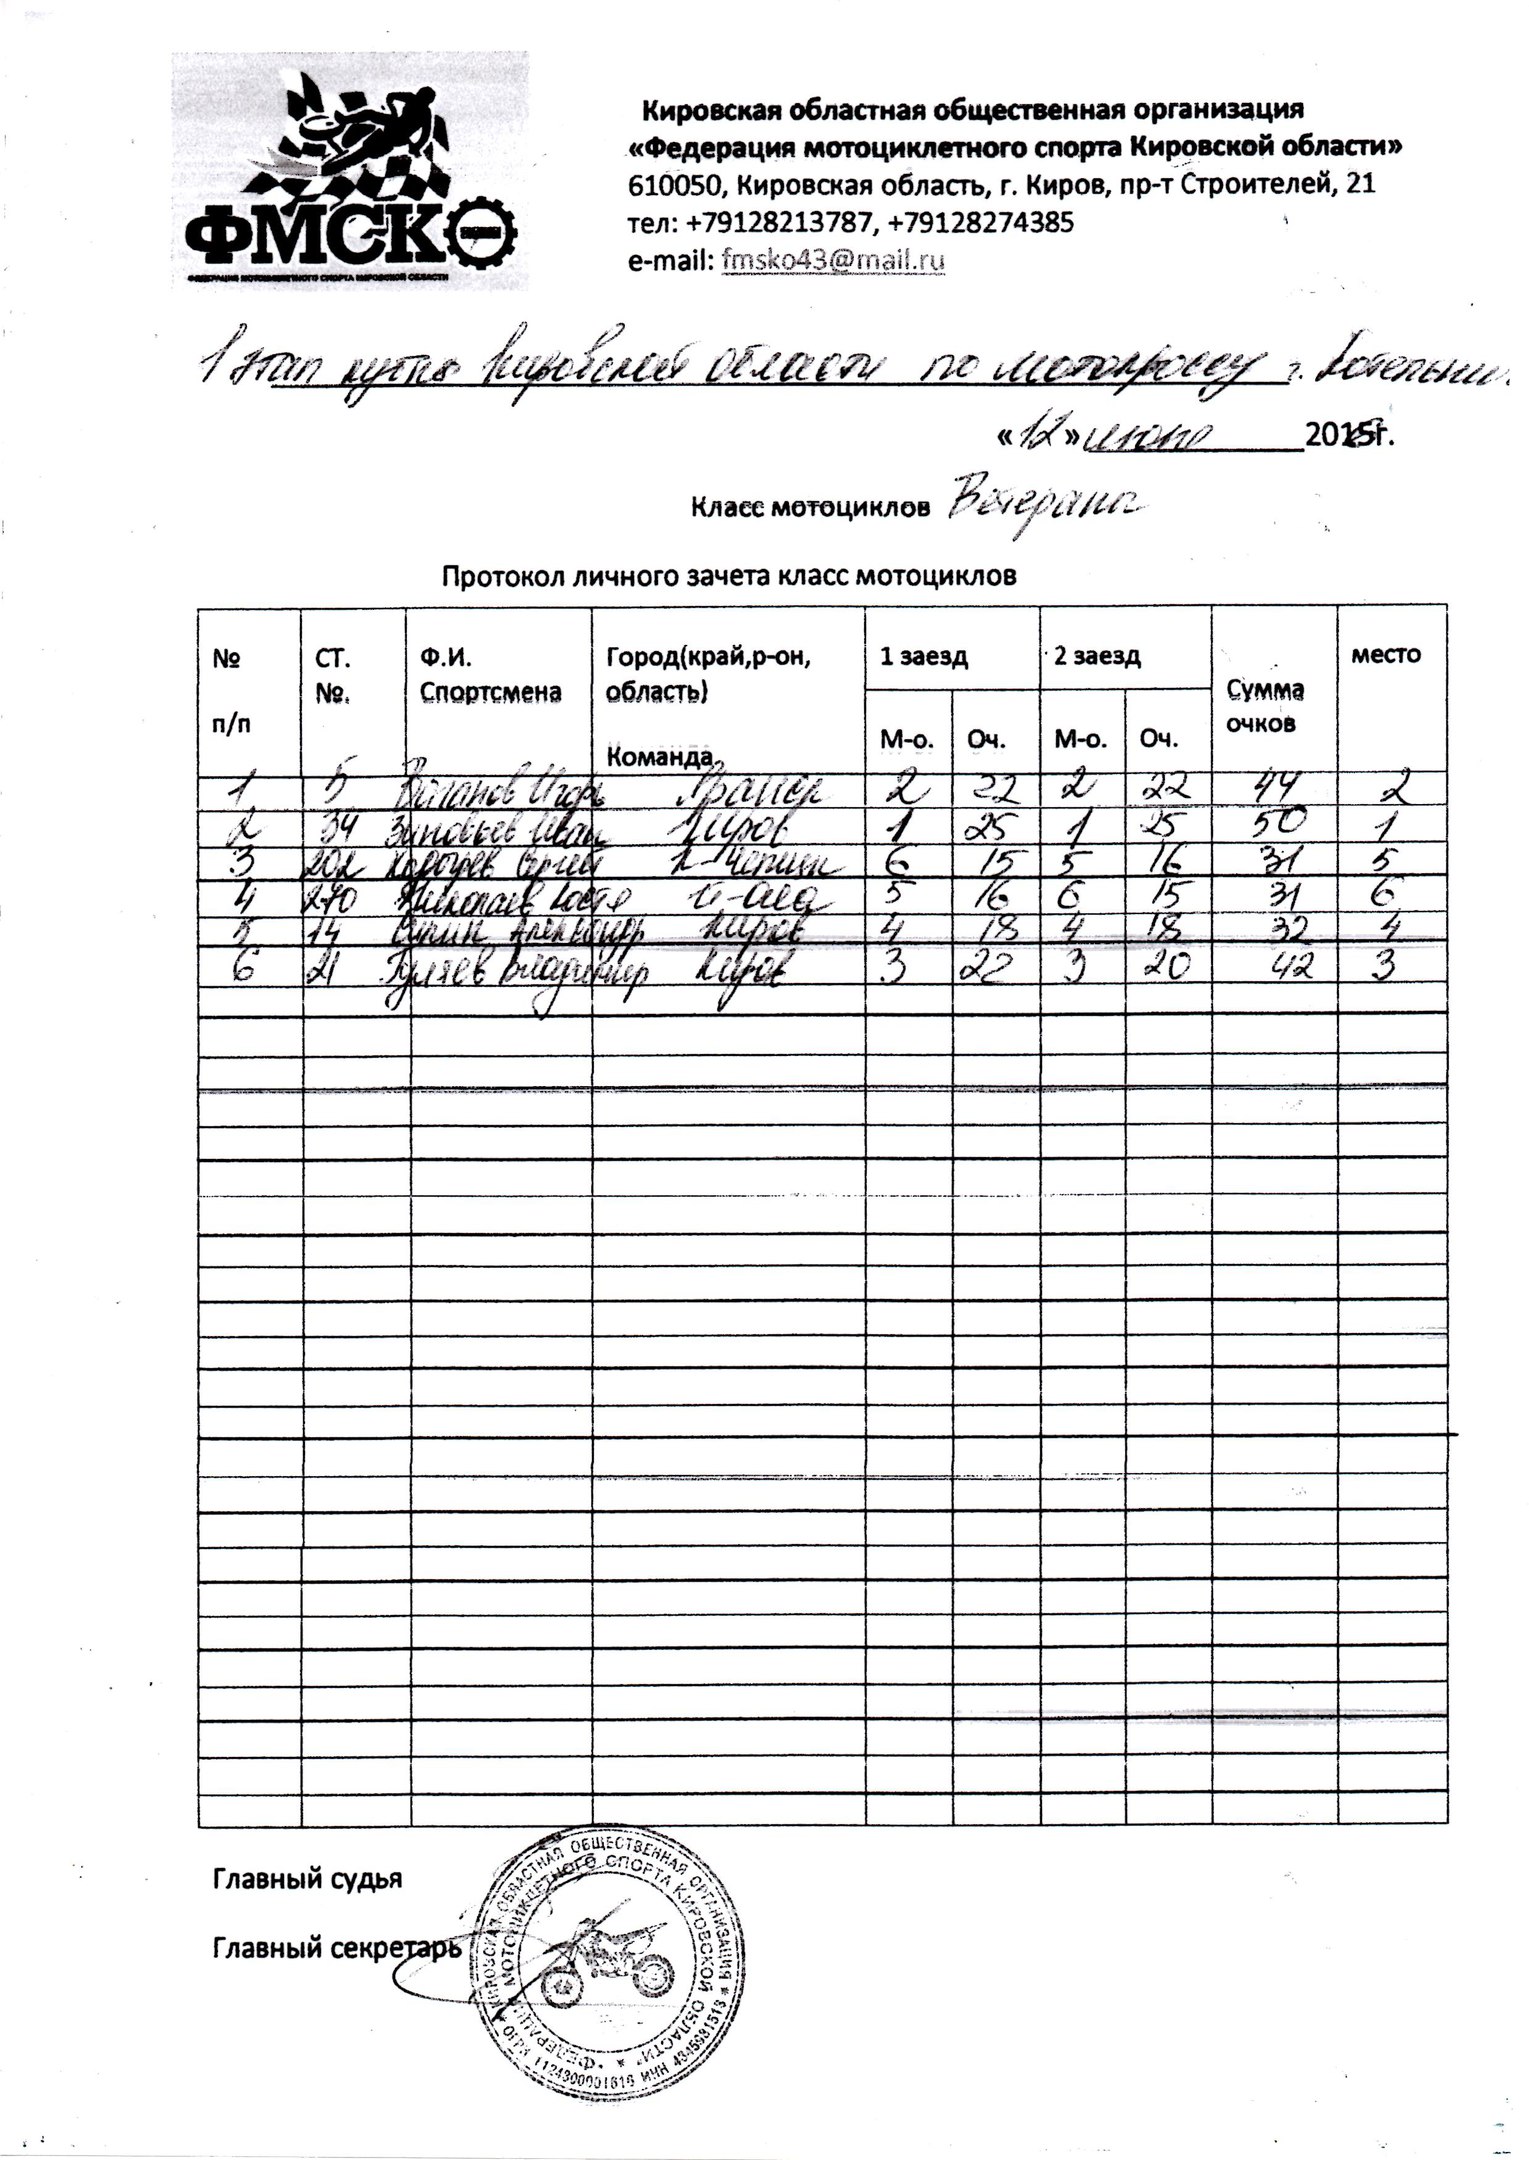 ФМСК
ФЕДЕРАЦИЯ МОТОЦИКЛЕТНОГО СПОРТА КИРОВСКОЙ ОБЛАСТИ
Кировская областная общественная организация
«Федерация мотоциклетного спорта Кировской области»
610050, Кировская область, г. Киров, пр-т Строителей, 21
тел: +79128213787, +79128274385
e-mail: fmsko43@mail.ru
1 этап кубка Кировской области по мотокроссу г. Котельни
«12» июня 2015г.
Класс мотоциклов Ветераны
Протокол личного зачета класс мотоциклов
№ п/п СТ. №. Ф.И. Спортсмена Город(край,р-он, область) Команда 1 заезд 2 заезд Сумма очков место
М-о. Оч. М-о. Оч.
1 5 Игорь 2 22 2 22 44 2
2 34 Зиновьев Иван Киров 1 25 1 25 50 1
3 202 Сергей К-Чепецк 6 15 5 16 31 5
4 270 Николаев Костя 5 16 6 15 31 6
5 14 Александр Киров 4 18 4 18 32 4
6 21 Гуляев Владимир Киров 3 22 3 20 42 3
Главный судья
Главный секретарь
КИРОВСКАЯ ОБЛАСТНАЯ ОБЩЕСТВЕННАЯ ОРГАНИЗАЦИЯ * ИНН 4345981513 1124300001616
"ФЕДЕРАЦИЯ МОТОЦИКЛЕТНОГО СПОРТА КИРОВСКОЙ ОБЛАСТИ" *